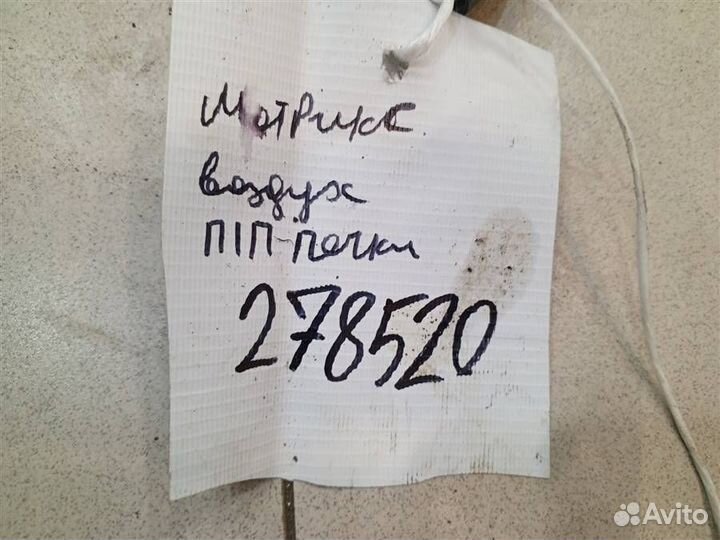 Матрикс
воздух
П1П-печки
278520
Avito